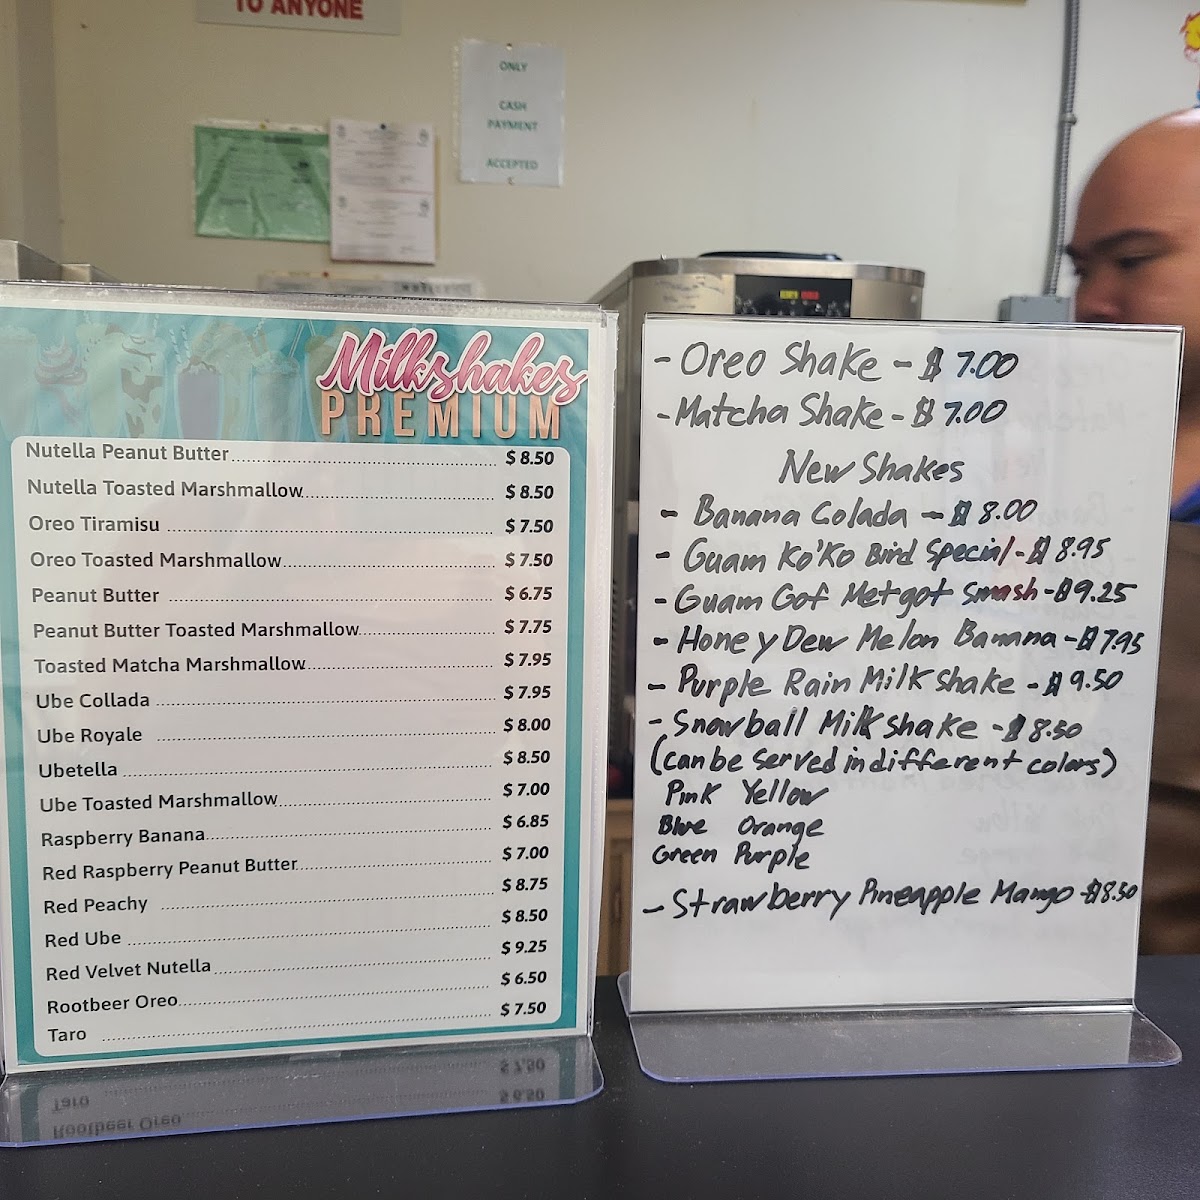 TO ANYONE
ONLY
CASH
PAYMENT
ACCEPTED
Milkshakes
PREMIUM
Nutella Peanut Butter $ 8.50
Nutella Toasted Marshmallow $ 8.50
Oreo Tiramisu $ 7.50
Oreo Toasted Marshmallow $ 7.50
Peanut Butter $ 6.75
Peanut Butter Toasted Marshmallow $ 7.75
Toasted Matcha Marshmallow $ 7.95
Ube Collada $ 7.95
Ube Royale $ 8.00
Ubetella $ 8.50
Ube Toasted Marshmallow $ 7.00
Raspberry Banana $ 6.85
Red Raspberry Peanut Butter $ 7.00
Red Peachy $ 8.75
Red Ube $ 8.50
Red Velvet Nutella $ 9.25
Rootbeer Oreo $ 6.50
Taro $ 7.50
- Oreo Shake - $ 7.00
- Matcha Shake - $ 7.00
New Shakes
- Banana Colada - $ 8.00
- Guam Ko'Ko Bird Special - $ 8.95
- Guam Gof Metgot Smash - $9.25
- Honey Dew Melon Banana - $7.95
- Purple Rain Milkshake - $ 9.50
- Snowball Milkshake - $ 8.50
(can be served in different colors)
Pink Yellow
Blue Orange
Green Purple
- Strawberry Pineapple Mango - $8.50